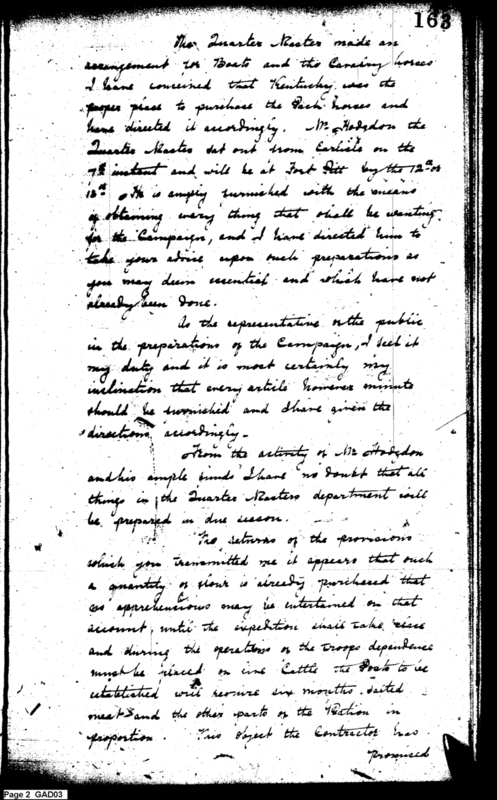 163
The Quarter Master made an
arrangement for Boats and the Cavalry horses
I have conceived that Kentucky was the
proper place to purchase the Pack horses and
have directed it accordingly. Mr Hodgdon the
Quarter Master set out from Carlisle on the
7th instant and will be at Fort Pitt by the 12th or
13th He is amply furnished with the means
of obtaining every thing that shall be wanting
for the Campaign, and I have directed him to
take your advice upon such preparations as
you may deem essential and which have not
already been done.
As the representative of the public
in the preparations of the Campaign, I feel it
my duty and it is most certainly my
inclination that every article however minute
should be furnished and I have given the
directions accordingly -
From the activity of Mr Hodgdon
and his ample funds I have no doubt that all
things in the Quarter Masters department will
be prepared in due season.
returns of the provisions
which you transmitted me it appears that such
a quantity of flour is already purchased that
no apprehensions may be entertained on that
account, until the expedition shall take place
and during the operations of the troops dependence
must be placed on live Cattle the Posts to be
established will require six months salted
meat and the other parts of the Ration in
proportion. This object the Contractor has
promised
Page 2 GAD03